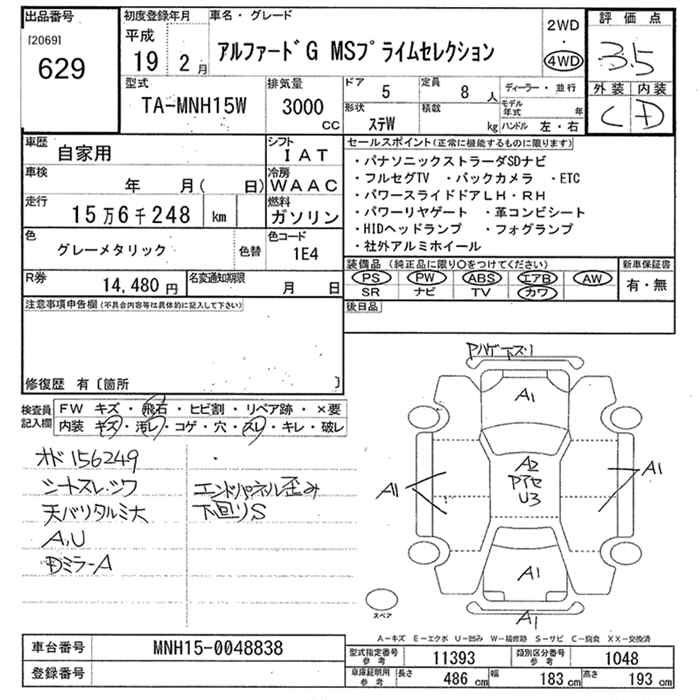 出品番号
[2069]
629
初度登録年月
平成
19 2月
車名・グレード
アルファードG MSプライムセレクション
2WD
・
4WD
評価点
3.5
外装 内装
C D
型式
TA-MNH15W
排気量
3000
cc
ドア 5
定員 8 人
ディーラー・並行
形状 ステW
積載 kg
モデル年式 年
ハンドル 左・右
車歴
自家用
シフト
IAT
車検
年 月( 日)
冷房
WAAC
走行
15万6千248 km
燃料
ガソリン
色
グレーメタリック
色替
色コード
1E4
R券
14,480 円
名変通知期限
月 日
セールスポイント(正常に機能するものに限ります)
・パナソニックストラーダSDナビ
・フルセグTV ・バックカメラ ・ETC
・パワースライドドアLH・RH
・パワーリヤゲート ・革コンビシート
・HIDヘッドランプ ・フォグランプ
・社外アルミホイール
装備品(純正品に限り○をつけてください)
PS PW ABS エアB AW
SR ナビ TV カワ
新車保証書
有・無
後日品
注意事項申告欄(不具合内容等は具体的に記入して下さい)
修復歴 有〔箇所 〕
検査員記入欄
FW キズ・飛石・ヒビ割・リペア跡・×要
内装 キズ・汚レ・コゲ・穴・スレ・キレ・破レ
オド156249
シートスレ・シワ
天バリタルミ大
A,U
Dミラ-A
エンドパネル歪み
下回りS
A1
A2
U3
A1
A1
A1
A1
スペア
A-キズ E-エクボ U-凹み W-補修跡 S-サビ C-腐食 XX-交換済
車台番号
MNH15-0048838
登録番号
型式指定番号 参考
11393
類別区分番号 参考
1048
車庫証明用 参考
長さ 486 cm
幅 183 cm
高さ 193 cm